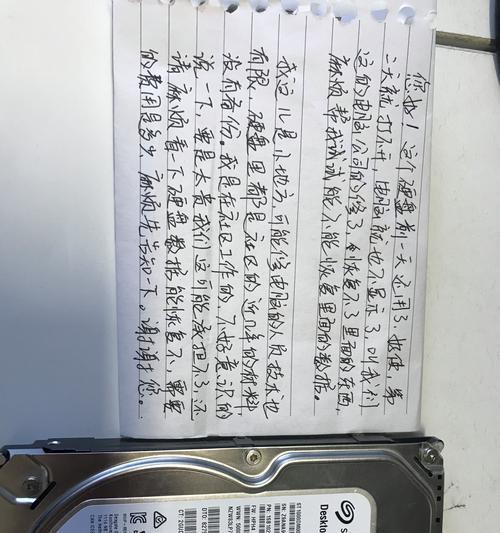 您好！这个硬盘前一天还用了，好使，第
二天就打不开，电脑就也不显示了，叫我们
这的电脑公司的修了，恢复不了里面的东西，
麻烦帮我试试能不能恢复里面的数据。
我这儿是小地方，可能修电脑的人员技术也
有限，硬盘里都是社区的近几年的材料
没有备份。我是在社区工作的，不好意思的
说一下，要是太贵我们这可能承担不了，还
请麻烦看一下硬盘数据能恢复不，需要
的费用是多少，麻烦先告知一下。谢谢您。
Desktop
ST1000DM0